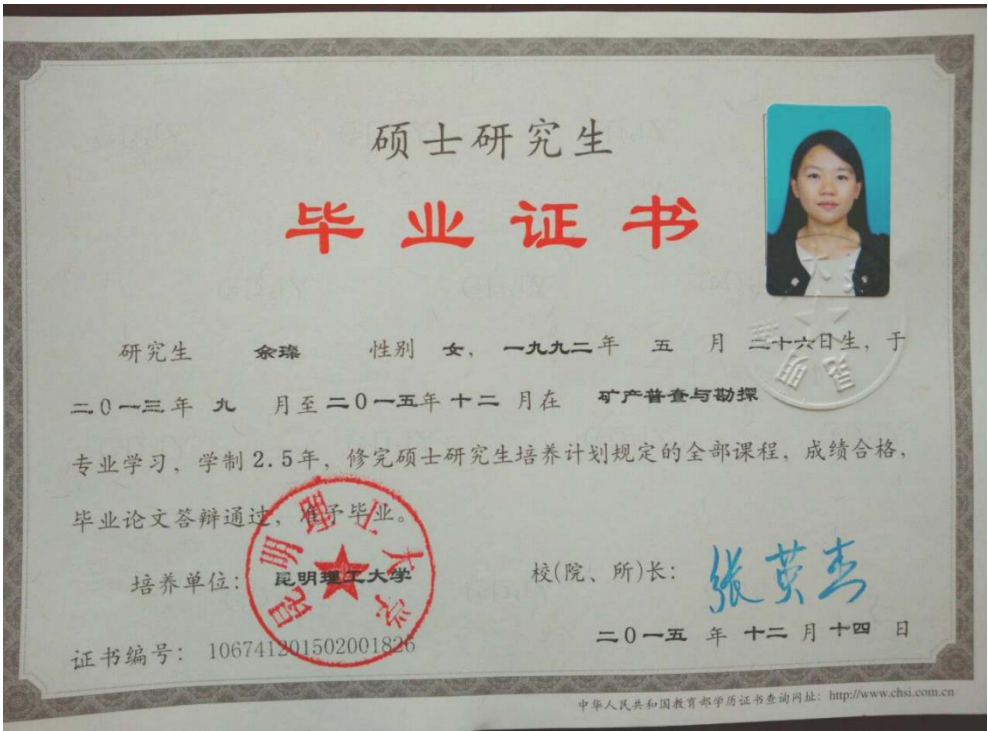 硕士研究生
毕业证书
研究生 余璪 性别 女，一九九二年 五 月 二十六日生，于
二〇一三年 九 月至二〇一五年 十二 月在 矿产普查与勘探
专业学习，学制2.5年，修完硕士研究生培养计划规定的全部课程，成绩合格，
毕业论文答辩通过，准予毕业。
培养单位：昆明理工大学
昆明理工大学
校(院、所)长：张英杰
证书编号：106741201502001826
二〇一五 年 十二 月 十四 日
中华人民共和国教育部学历证书查询网址：http://www.chsi.com.cn